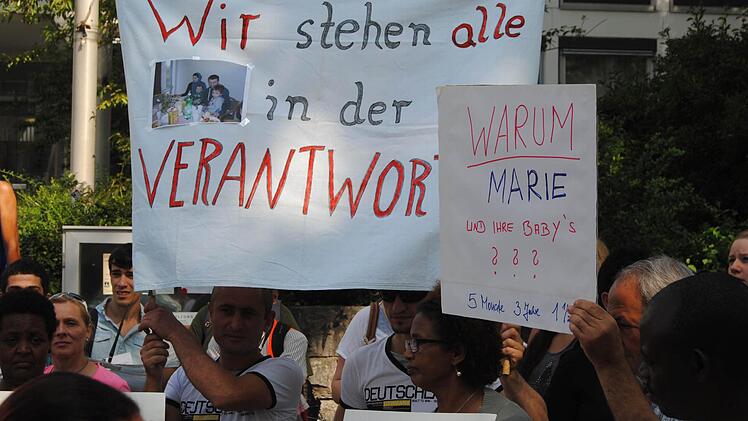 Wir stehen alle
in der
VERANTWOR
WARUM
MARIE
UND IHRE BABY'S
? ? ?
5 Monate 3 Jahre 1
DEUTSCHL
DEUTSCH